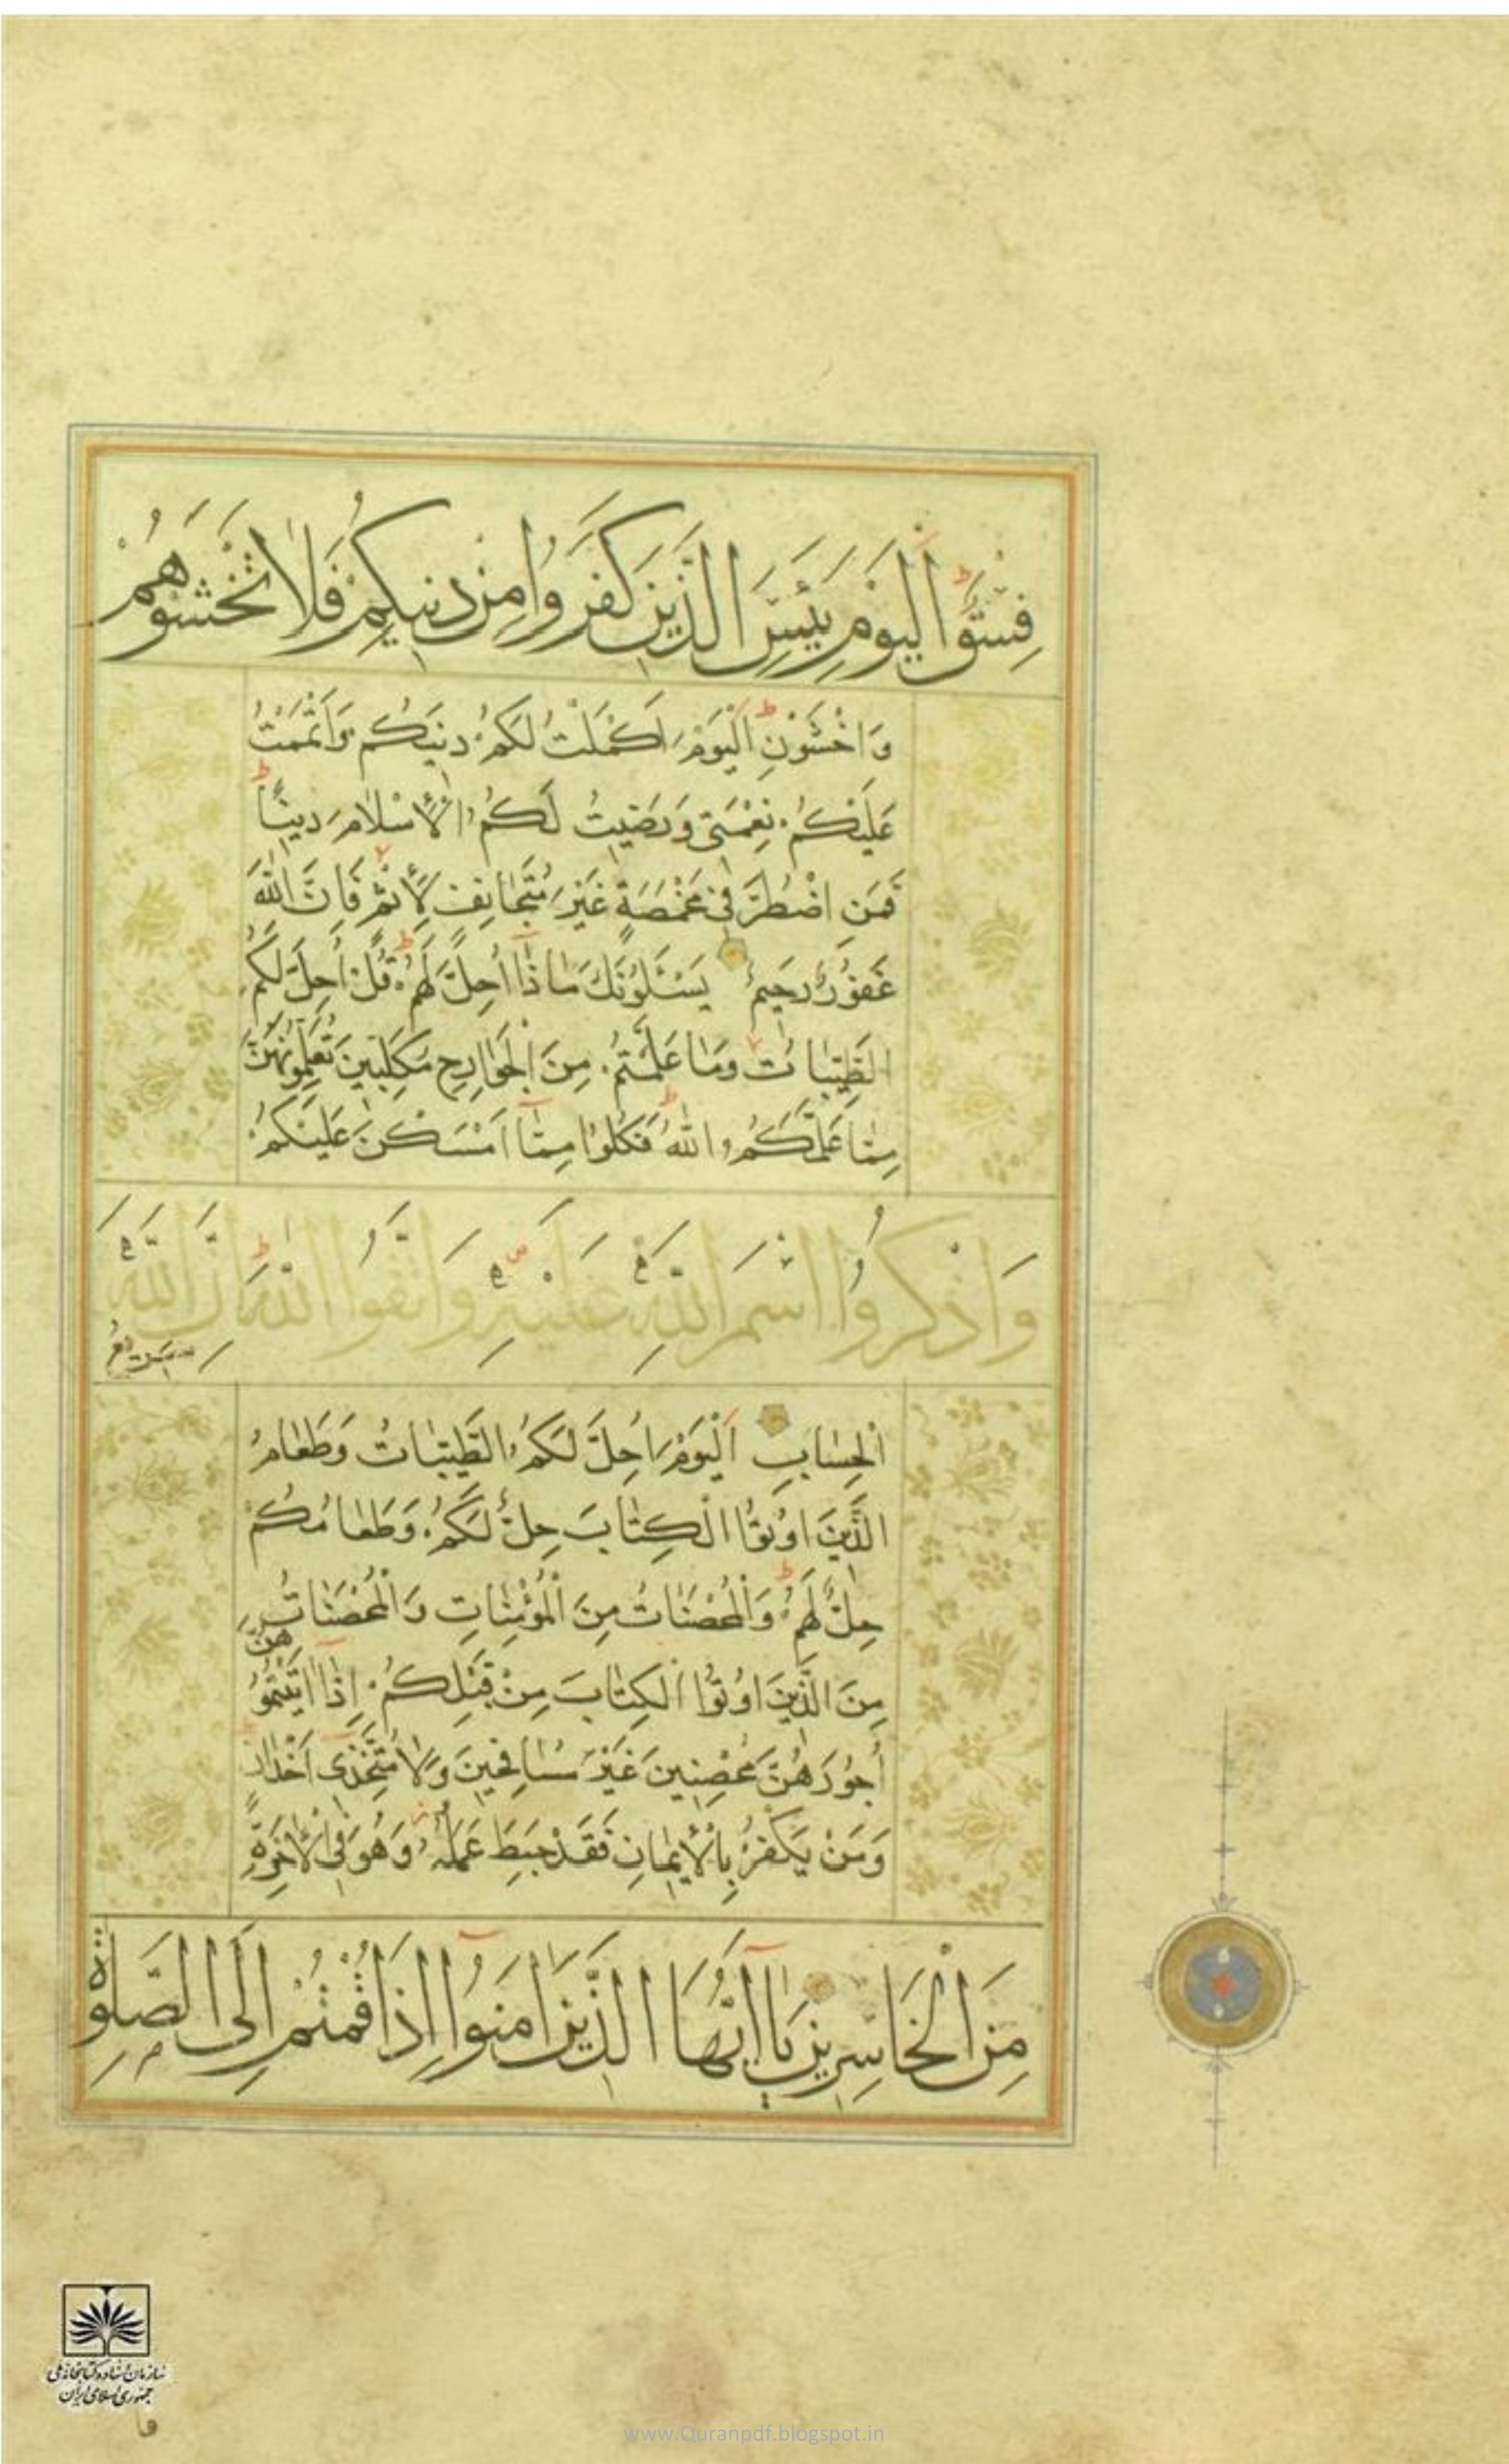 فِسْقٌ اَلْيَوْمَ يَئِسَ الَّذِينَ كَفَرُوا مِنْ دِينِكُمْ فَلَا تَخْشَوْهُمْ
وَاخْشَوْنِ اَلْيَوْمَ اَكْمَلْتُ لَكُمْ دِينَكُمْ وَاَتْمَمْتُ
عَلَيْكُمْ نِعْمَتِى وَرَضِيتُ لَكُمُ الْاِسْلَامَ دِينًا
فَمَنِ اضْطُرَّ فِى مَخْمَصَةٍ غَيْرَ مُتَجَانِفٍ لِاِثْمٍ فَاِنَّ اللّٰهَ
غَفُورٌ رَحِيمٌ يَسْئَلُونَكَ مَاذَا اُحِلَّ لَهُمْ قُلْ اُحِلَّ لَكُمُ
الطَّيِّبَاتُ وَمَا عَلَّمْتُمْ مِنَ الْجَوَارِحِ مُكَلِّبِينَ تُعَلِّمُونَهُنَّ
مِمَّا عَلَّمَكُمُ اللّٰهُ فَكُلُوا مِمَّا اَمْسَكْنَ عَلَيْكُمْ
وَاذْكُرُوا اسْمَ اللّٰهِ عَلَيْهِ وَاتَّقُوا اللّٰهَ اِنَّ اللّٰهَ
سَرِيعُ
الْحِسَابِ اَلْيَوْمَ اُحِلَّ لَكُمُ الطَّيِّبَاتُ وَطَعَامُ
الَّذِينَ اُوتُوا الْكِتَابَ حِلٌّ لَكُمْ وَطَعَامُكُمْ
حِلٌّ لَهُمْ وَالْمُحْصَنَاتُ مِنَ الْمُؤْمِنَاتِ وَالْمُحْصَنَاتُ
مِنَ الَّذِينَ اُوتُوا الْكِتَابَ مِنْ قَبْلِكُمْ اِذَا اٰتَيْتُمُوهُنَّ
اُجُورَهُنَّ مُحْصِنِينَ غَيْرَ مُسَافِحِينَ وَلَا مُتَّخِذِى اَخْدَانٍ
وَمَنْ يَكْفُرْ بِالْاِيمَانِ فَقَدْ حَبِطَ عَمَلُهُ وَهُوَ فِى الْاٰخِرَةِ
مِنَ الْخَاسِرِينَ يَا اَيُّهَا الَّذِينَ اٰمَنُوا اِذَا قُمْتُمْ اِلَى الصَّلٰوةِ
سازمان اسناد و کتابخانه ملی
جمهوری اسلامی ایران
www.Quranpdf.blogspot.in